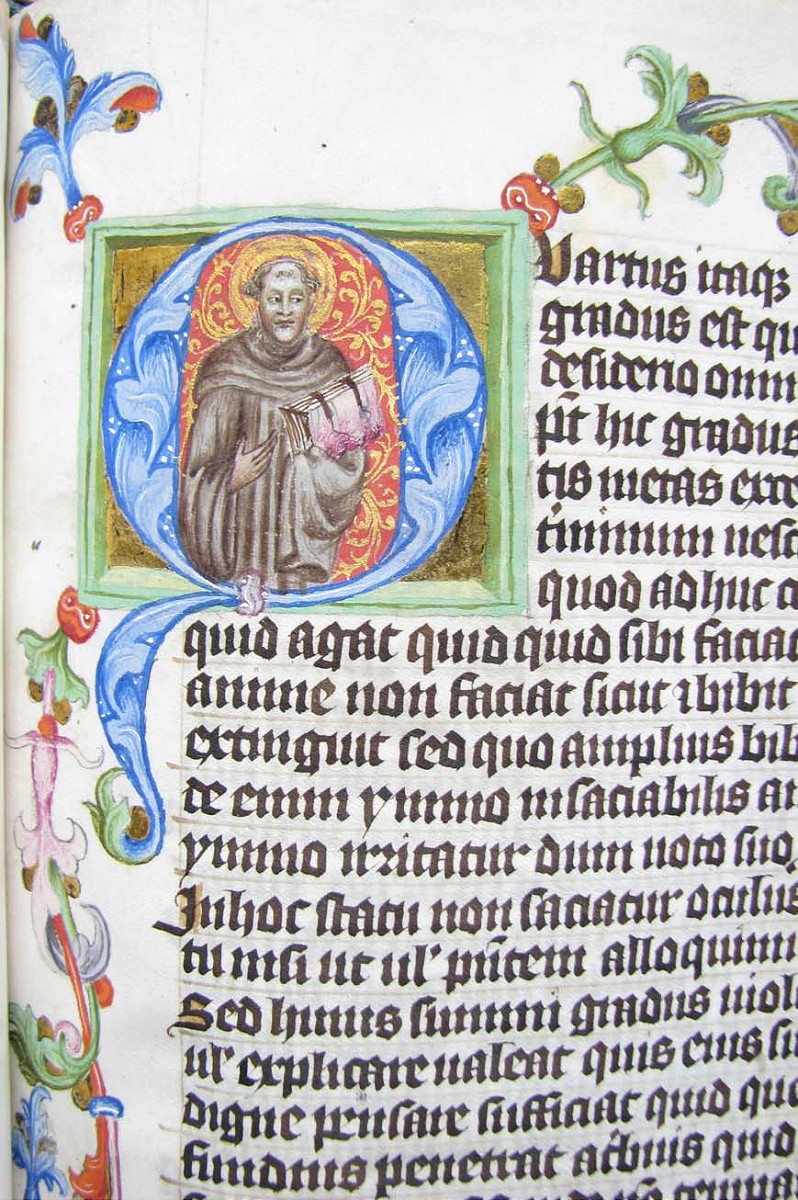 Vartus itaqꝫ
gradus est qu
desiderio omni
p̄t hic gradus
tis metas exce
t̓minum nesc
quod adhuc c
quid agat quid quid sibi faciat
anime non faciat sicit ⁊ bibit
extinguit sed quo amplius bib
de enim ymmo insaciabilis a
ymmo irritatur dum uoto suo
In hoc statu non saciatur oculus
tu nisi ut ul̓ pn̄tem alloquium
Sed huius summi gradus uiol
ul̓ explicare ualeat quis eius su
digne pensare sufficiat quid que
fundius penetrat ac̓bius quid